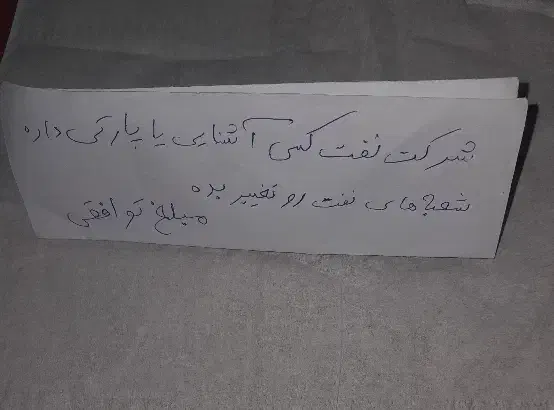 شرکت نفت کسی آشنایی یا پارتی داره
شعبه های نفت رو تغییر بده
مبلغ توافقی